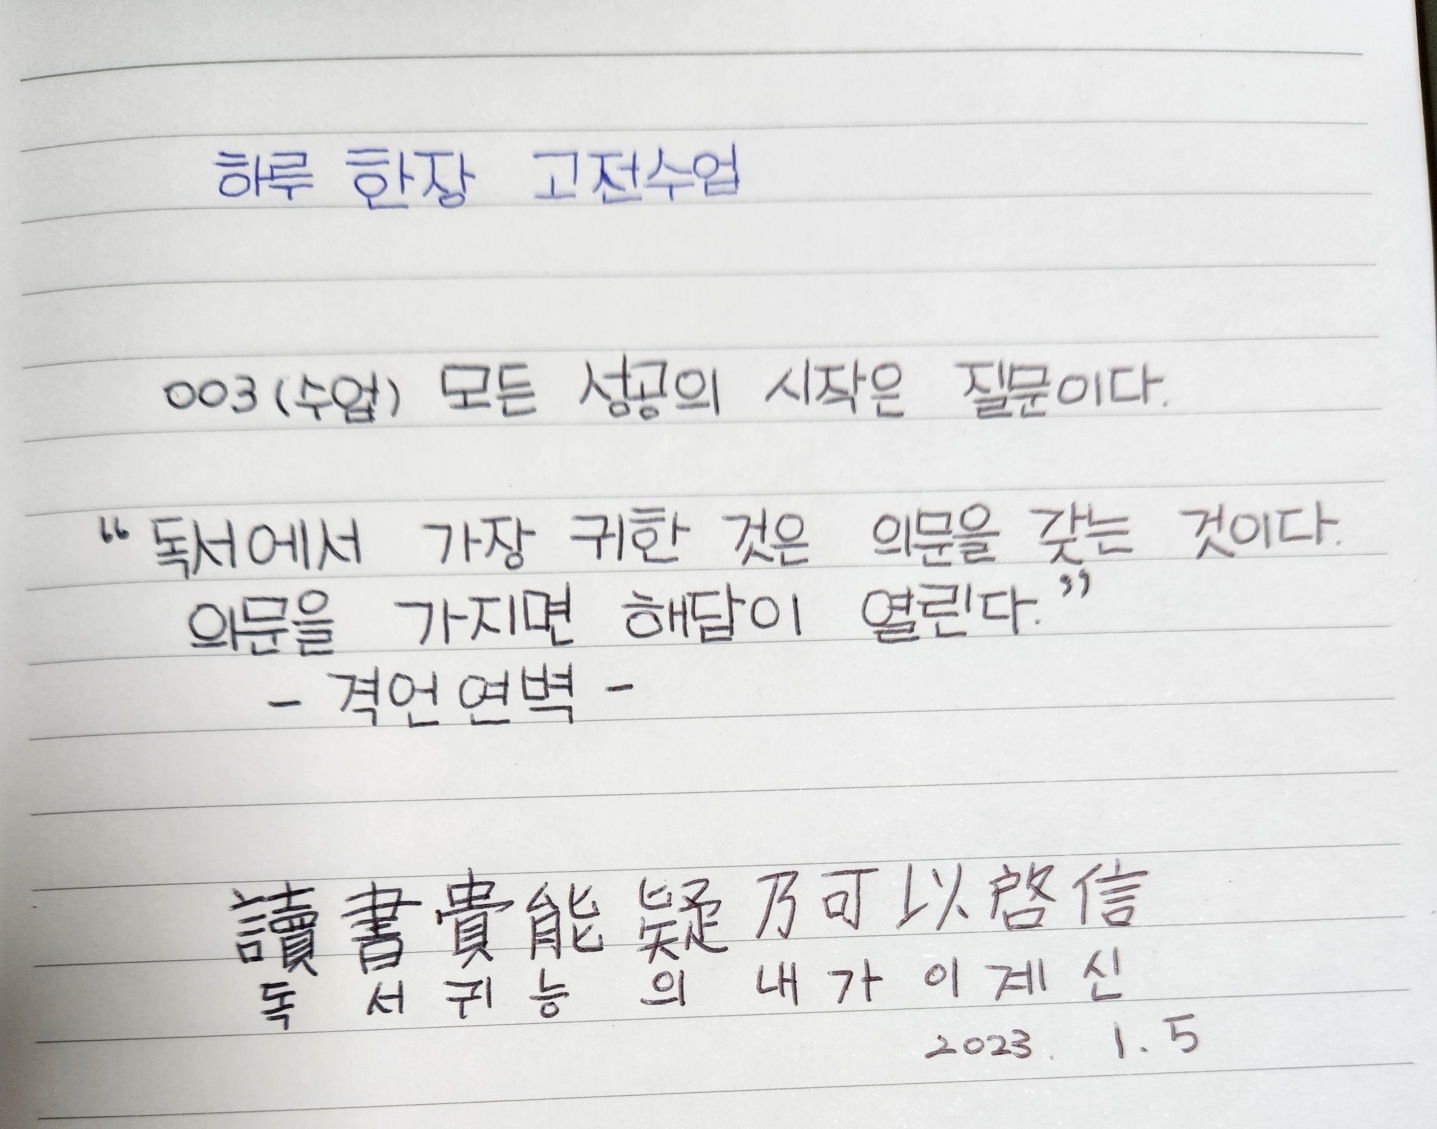 하루 한장 고전수업
003(수업) 모든 성공의 시작은 질문이다.
“독서에서 가장 귀한 것은 의문을 갖는 것이다.
의문을 가지면 해답이 열린다.”
- 격언연벽 -
讀書貴能疑乃可以啓信
독서귀능의내가이계신
2023. 1. 5